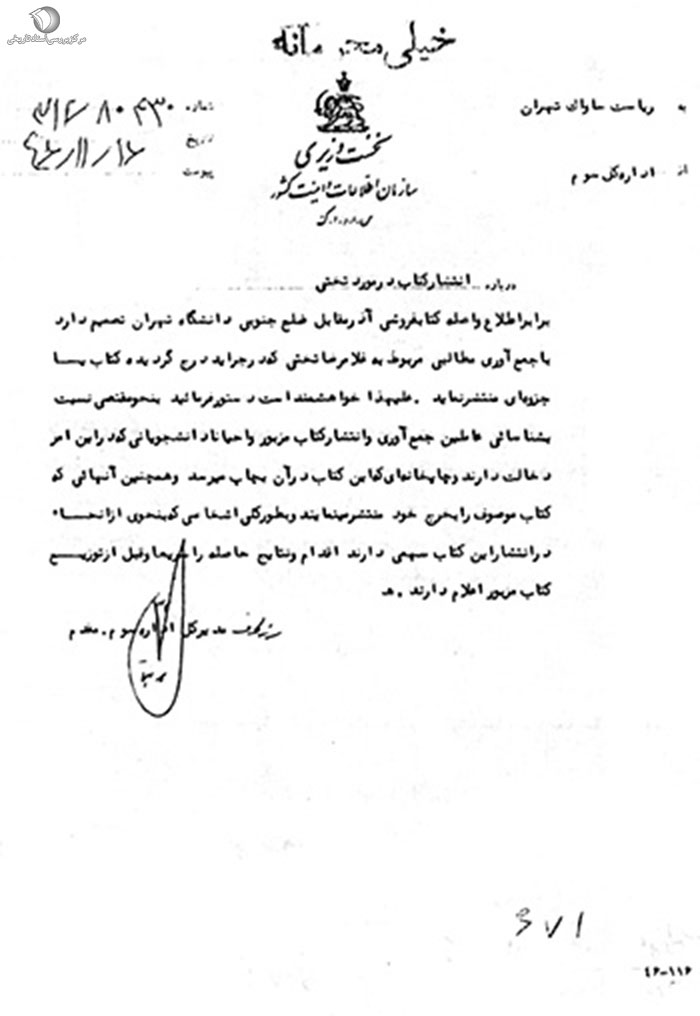 مرکز بررسی اسناد تاریخی
خیلی محرمانه
به ریاست ساواک تهران
از اداره کل سوم
شماره ۳۱۲/۸۰۴۳۰
تاریخ ۴۶/۱۱/۱۶
پیوست
نخست وزیری
سازمان اطلاعات و امنیت کشور
س.ا.و.ا.ک
درباره انتشار کتاب در مورد تختی
برابر اطلاع واصله کتابفروشی آذر مقابل ضلع جنوبی دانشگاه تهران تصمیم دارد
با جمع آوری مطالبی مربوط به غلامرضا تختی که در جراید درج گردیده کتاب یا
جزوه‌ای منتشر نماید . علیهذا خواهشمند است دستور فرمائید بنحو مقتضی نسبت
بشناسائی عاملین جمع آوری و انتشار کتاب مزبور و احیانا دانشجویانی که در این امر
دخالت دارند و چاپخانه‌ای که این کتاب در آن بچاپ میرسد و همچنین آنهائی که
کتاب موصوف را بخرج خود منتشر مینمایند و بطور کلی اشخاصی که بنحوی از انحاء
در انتشار این کتاب سهمی دارند اقدام و نتایج حاصله را سریعا و قبل از توزیع
کتاب مزبور اعلام دارند . هـ
مدیر کل اداره سوم . مقدم
۳۷۱
۴۶-۱۱۶